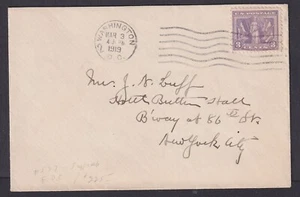 WASHINGTON
MAR 3
1919
D.C.
U.S. POSTAGE
3 CENTS 3
Mrs. J. N. Luff
Hotel Butler Hall
B'way at 86th St.
New York City